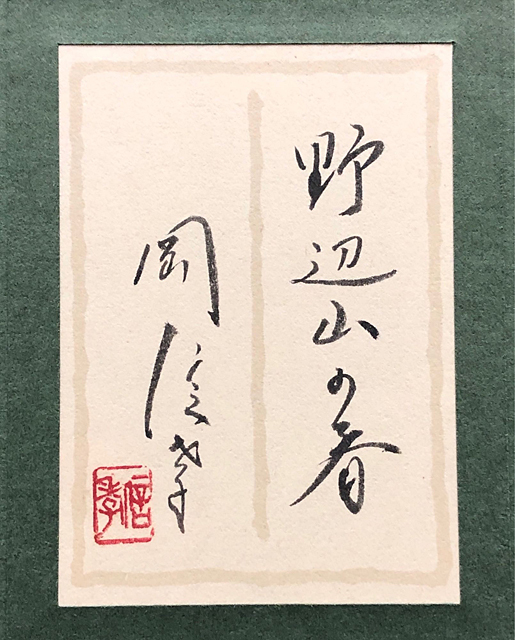 野辺山の春
岡信孝
信孝